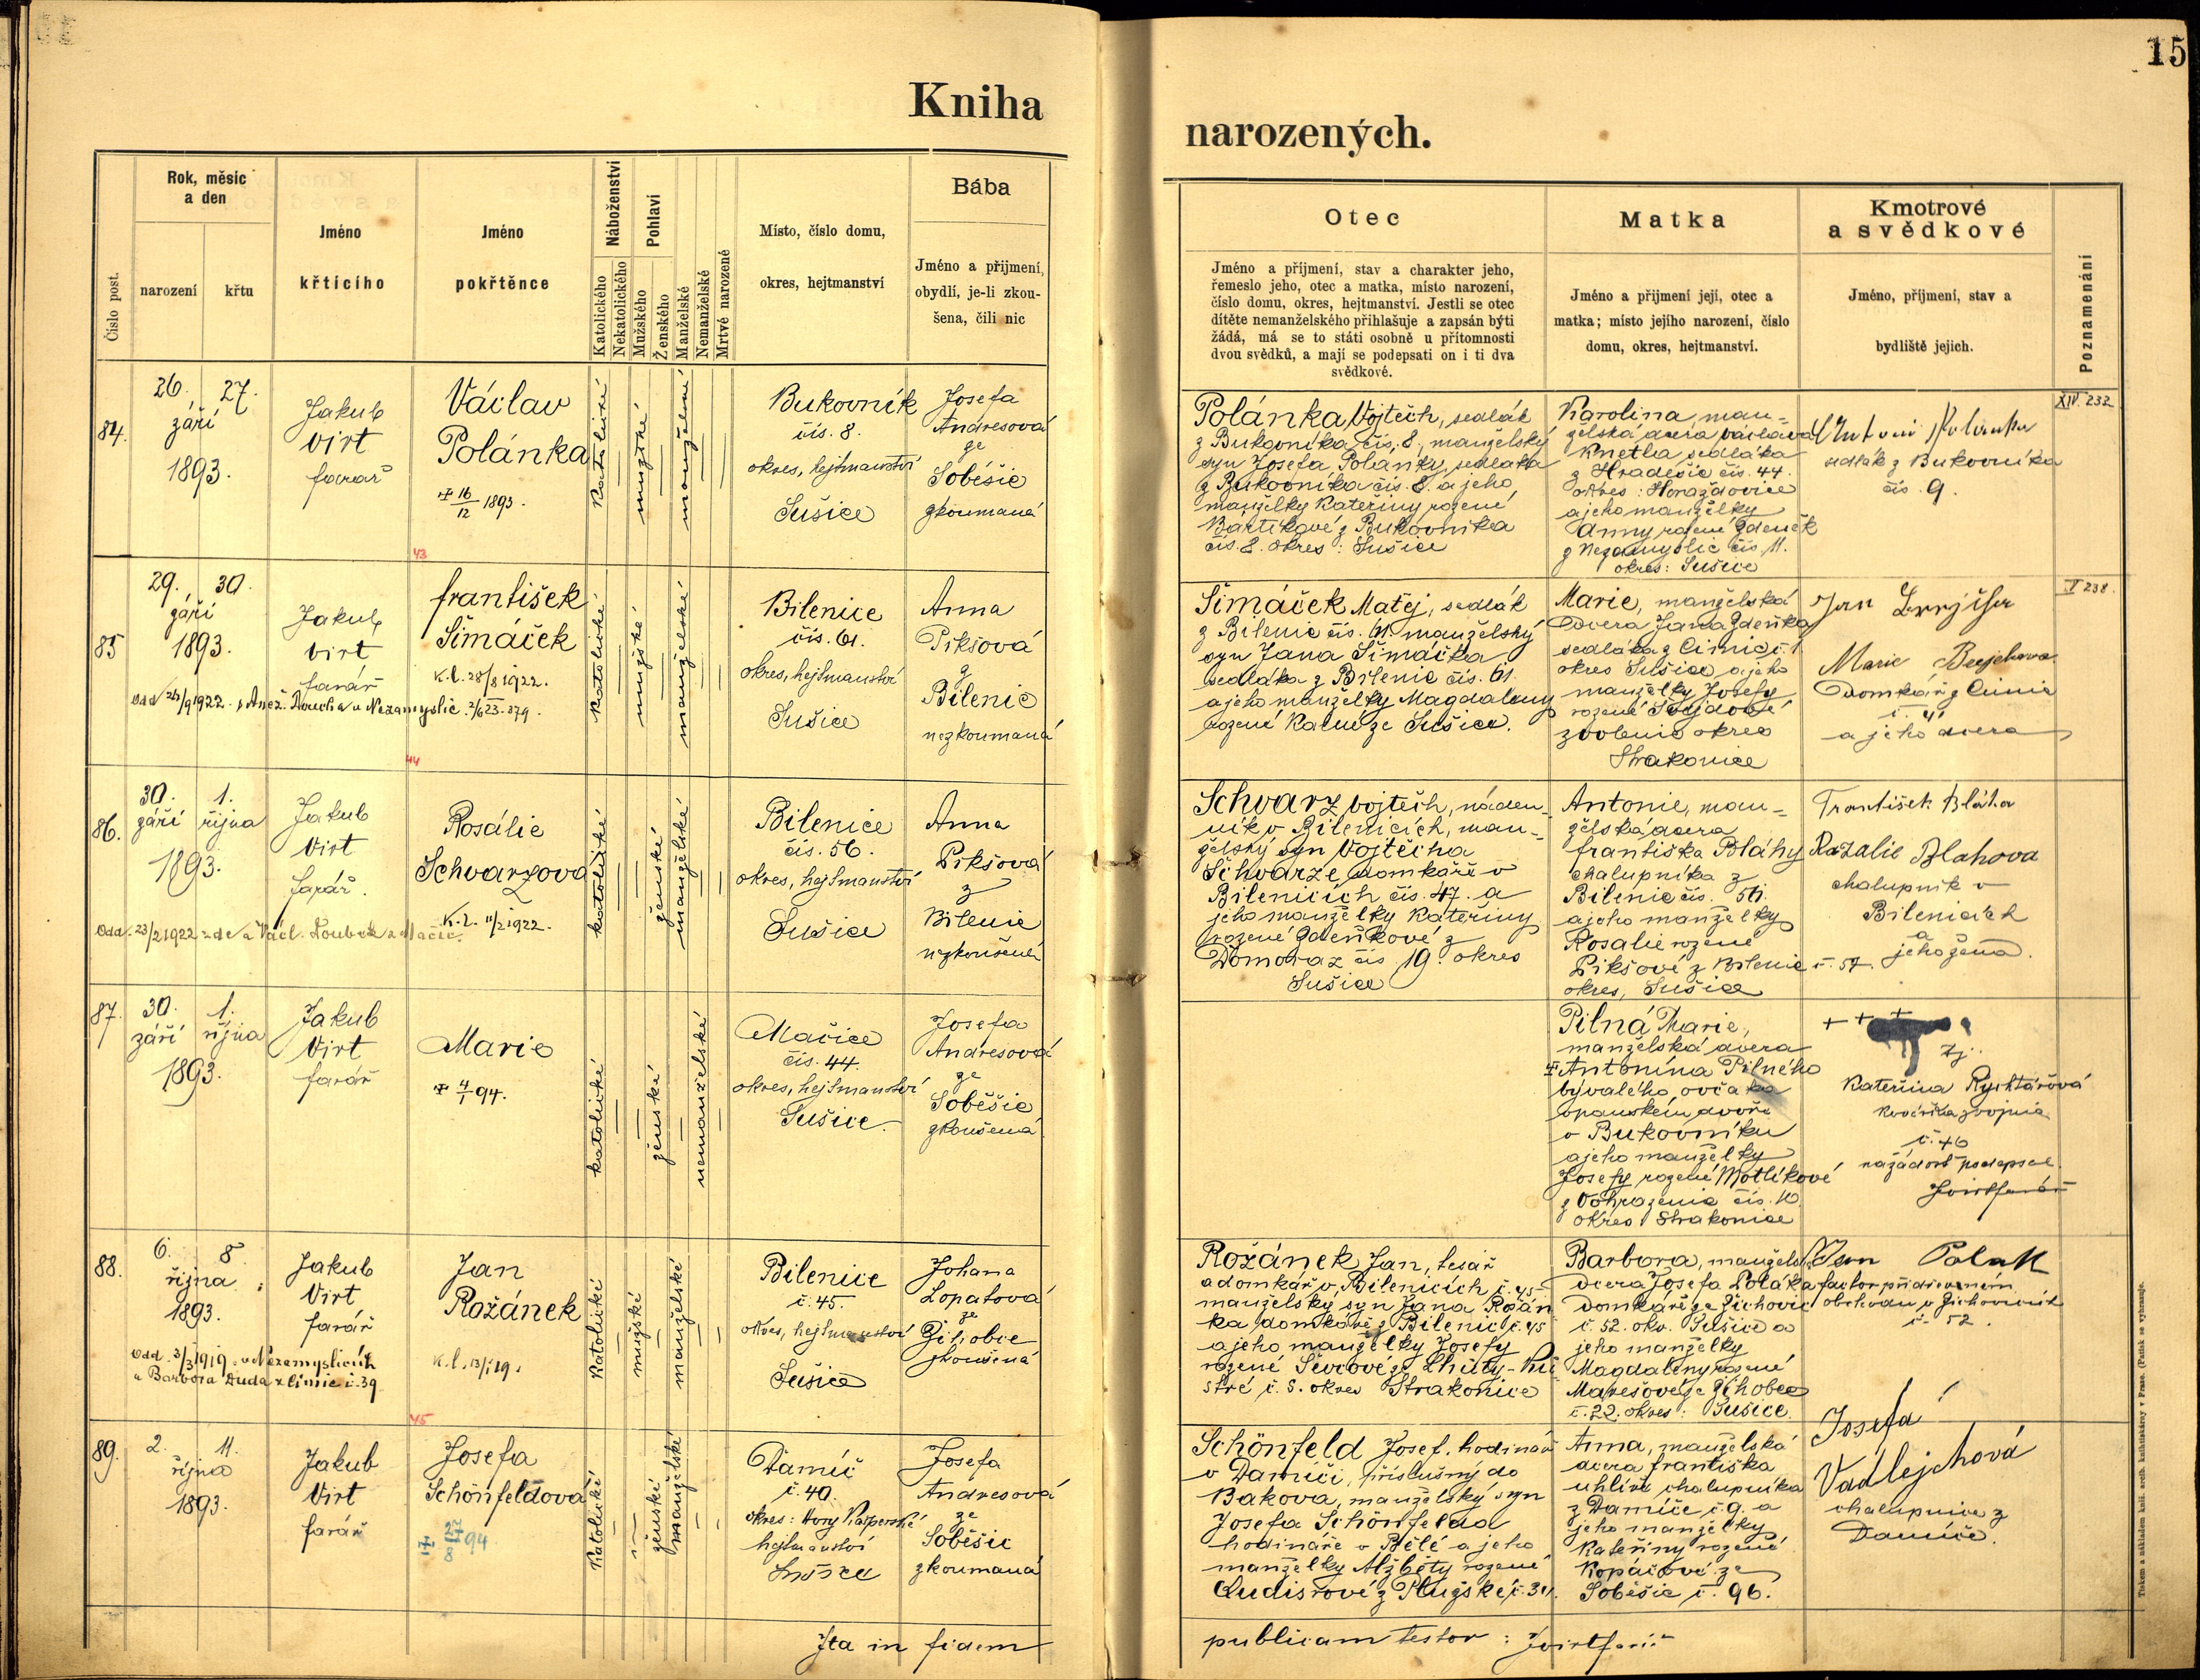 15
Kniha
narozených.
Číslo post.
Rok, měsíc
a den
narození
křtu
Jméno
křtícího
Jméno
pokřtěnce
Náboženství
Katolického
Nekatolického
Pohlaví
Mužského
Ženského
Manželské
Nemanželské
Mrtvě narozené
Místo, číslo domu,
okres, hejtmanství
Bába
Jméno a přijmení,
obydlí, je-li zkou-
šena, čili nic
Otec
Jméno a příjmení, stav a charakter jeho,
řemeslo jeho, otec a matka, místo narození,
číslo domu, okres, hejtmanství. Jestli se otec
dítěte nemanželského přihlašuje a zapsán býti
žádá, má se to státi osobně u přítomnosti
dvou svědků, a mají se podepsati on i ti dva
svědkové.
Matka
Jméno a přijmení její, otec a
matka; místo jejího narození, číslo
domu, okres, hejtmanství.
Kmotrové
a svědkové
Jméno, příjmení, stav a
bydliště jejich.
Poznamenání
84.
26. 27.
září
1893.
Jakub
Virt
farář
Václav
Polánka
16/12 1893.
katolické
mužské
manželské
Bukovník
čís. 8.
okres, hejtmanství
Sušice
Josefa
Andresová
ze
Soběšic
zkoumaná
Polánka, Vojtěch, sedlák
z Bukovníka, čís. 8., manželský
syn Josefa Polánky, sedláka
z Bukovníka čís. 8. a jeho
manželky Kateřiny rozené
z Bukovníka
čís. 8. okres: Sušice
Karolina, man-
želská dcera Václava
sedláka
z Hradešic čís. 44.
okres: Horažďovice
a jeho manželky
Anny rozené Zdeněk
z Nezamyslic čís. 11.
okres: Sušice
Antoni Polanka
sedlák z Bukovníka
čís. 9.
XIV. 232
43
85
29. 30.
září
1893.
Jakub
Virt
farář
František
Šimáček
K.l. 28/8 1922.
katolické
mužské
manželské
Bilenice
čís. 61.
okres, hejtmanství
Sušice
Anna
Pikšová
z
Bilenic
nezkoumaná
Šimáček Matěj, sedlák
z Bilenic čís. 61. manželský
syn Jana Šimáčka
sedláka z Bilenic čís. 61.
a jeho manželky Magdaleny
rozené ze Sušice.
Marie, manželská
dcera Jana Zdeňka
sedláka z Čimic č. 1
okres Sušice a jeho
manželky Josefy
rozené
okres
Strakonice
Jan
Marie
domkář z Čimic
a jeho dcera
238.
44
86.
30. 1.
září října
1893.
Jakub
Virt
farář.
Rosálie
Schvarzova
K.l. 11/2 1922.
katolické
ženské
manželské
Bilenice
čís. 56.
okres, hejtmanství
Sušice
Anna
Pikšová
z
Bilenic
nezkoušená
Schvarz Vojtěch, náden-
ník v Bilenicích, man-
želský syn Vojtěcha
Schvarze domkáře v
Bilenicích čís. 47. a
jeho manželky Kateřiny
rozené Zdeňkové z
Domoraz čís. 19. okres
Sušice
Antonie, man-
želská dcera
Františka Bláhy
chalupníka z
Bilenic čís.
a jeho manželky
Rosalie rozené
Pikšové z Bilenic č. 57.
okres, Sušice
František Bláha
Rozalie Blahova
chalupník v
Bilenicích
a
jeho žena.
87.
30. 1.
září října
1893.
Jakub
Virt
farář
Marie
4/1 94.
katolické
ženské
nemanželské
Mačice
čís. 44.
okres, hejtmanství
Sušice
Josefa
Andresová
ze
Soběšic
zkoušená
Pilná Marie,
manželská dcera
Antonína Pilného
bývalého ovčáka
v panském dvoře
v Bukovníku
a jeho manželky
Josefy rozené Motlíkové
čís. 10
okres Strakonice
+ + +
Kateřina Rychtářová
č. 46
na žádost podepsal
88.
6. 8
října
1893.
Jakub
Virt
farář
Jan
Rožánek
K.l. 13/1 19.
Odd. 3/3 1919 v Nezamyslicích
Barbora Duda z Čimic č. 39
katolické
mužské
manželské
Bilenice
č. 45.
okres, hejtmanství
Sušice
Johana
Lopatová
ze
Žihobce
zkoušená
Rožánek Jan, tesař
a domkář v Bilenicích č. 45
manželský syn Jana Rožán
ka domkáře z Bilenic č. 45
a jeho manželky Josefy
rozené
č. 5. okres Strakonice
Barbora, manžels.
dcera Josefa Poláka
domkáře ze Žichovic
č. 52. okr. Sušice a
jeho manželky
Magdaleny rozené
Marešové ze Žihobce
č. 22. okres: Sušice.
Jan Polak
č. 52.
45
89.
2. 11.
října
1893.
Jakub
Virt
farář
Josefa
Schönfeldová
27/8 94
katolické
ženské
manželské
Damíč
č. 40.
okres: Hory Kašperské
hejtmanství
Sušice
Josefa
Andresová
ze
Soběšic
zkoumaná
Schönfeld Josef, hodinář
v Damíči, příslušný do
Bakova, manželský syn
Josefa Schönfelda
hodináře v Bělé a jeho
manželky Alžběty rozené
Anna, manželská
dcera Františka
uhlíře chalupníka
z Damíče č. 9. a
jeho manželky
Kateřiny rozené
Kopáčové ze
Soběšic č. 96.
Josefa
Vadlejchová
chalupnice z
Damíče.
Ita in fidem
publicam testor: JVirt farář